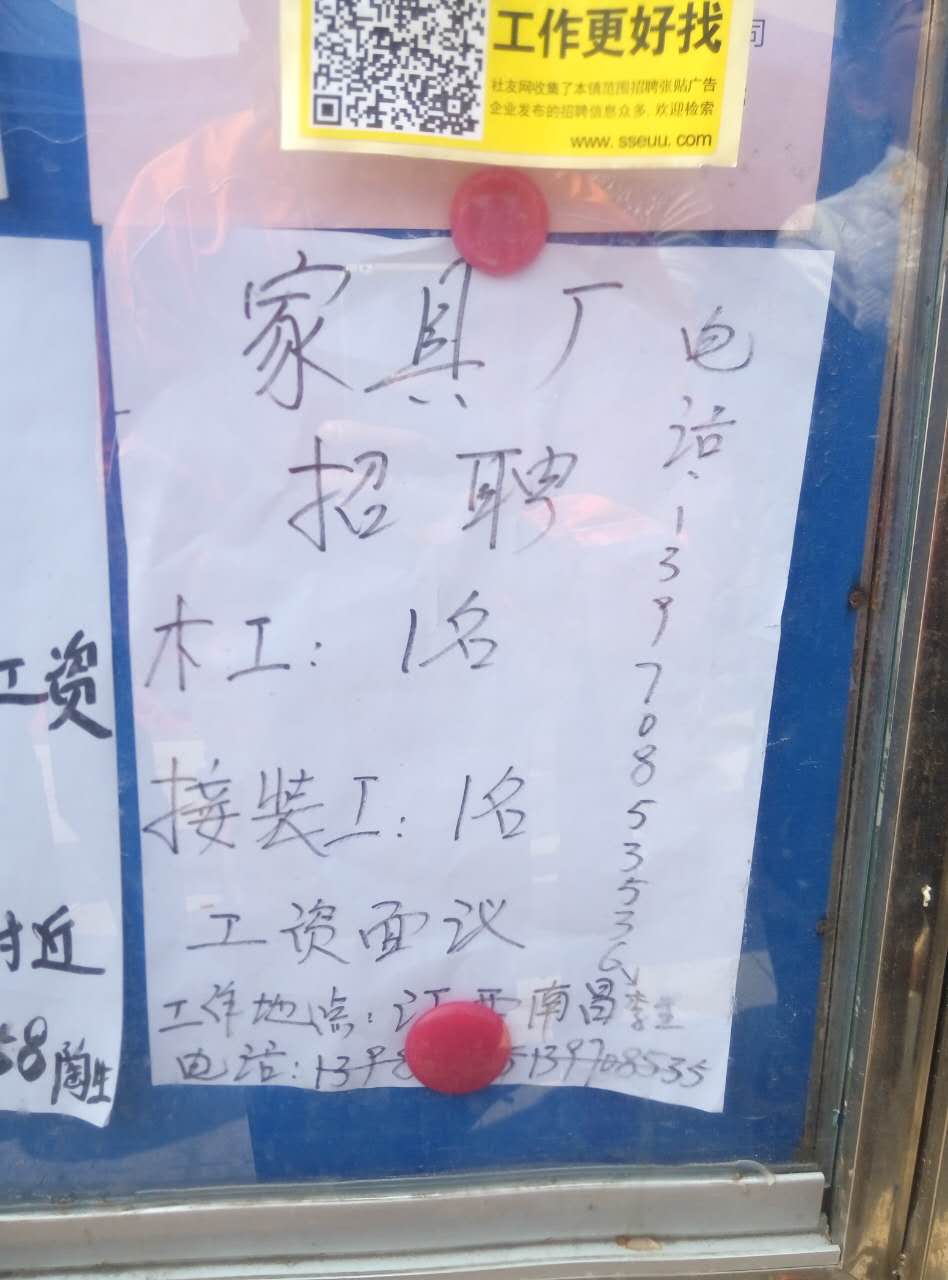 工作更好找
社友网收集了本镇范围招聘张贴广告
企业发布的招聘信息众多,欢迎检索
www.sseuu.com
司
家具厂
招聘
木工:1名
接装工:1名
工资面议
工作地点:江西南昌李生
电话:13985139708535
电话:13970853536
工资
附近
58陶生